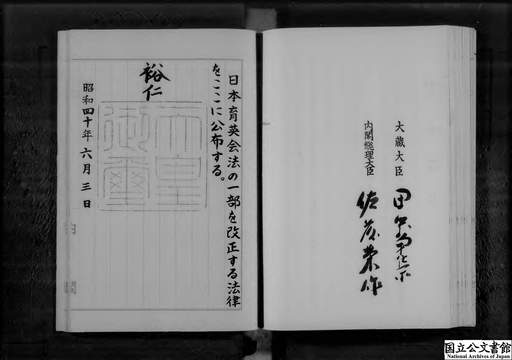 日本育英会法の一部を改正する法律
をここに公布する。
裕仁
天皇
御璽
昭和四十年六月三日
大蔵大臣
内閣総理大臣
佐藤栄作
国立公文書館
National Archives of Japan